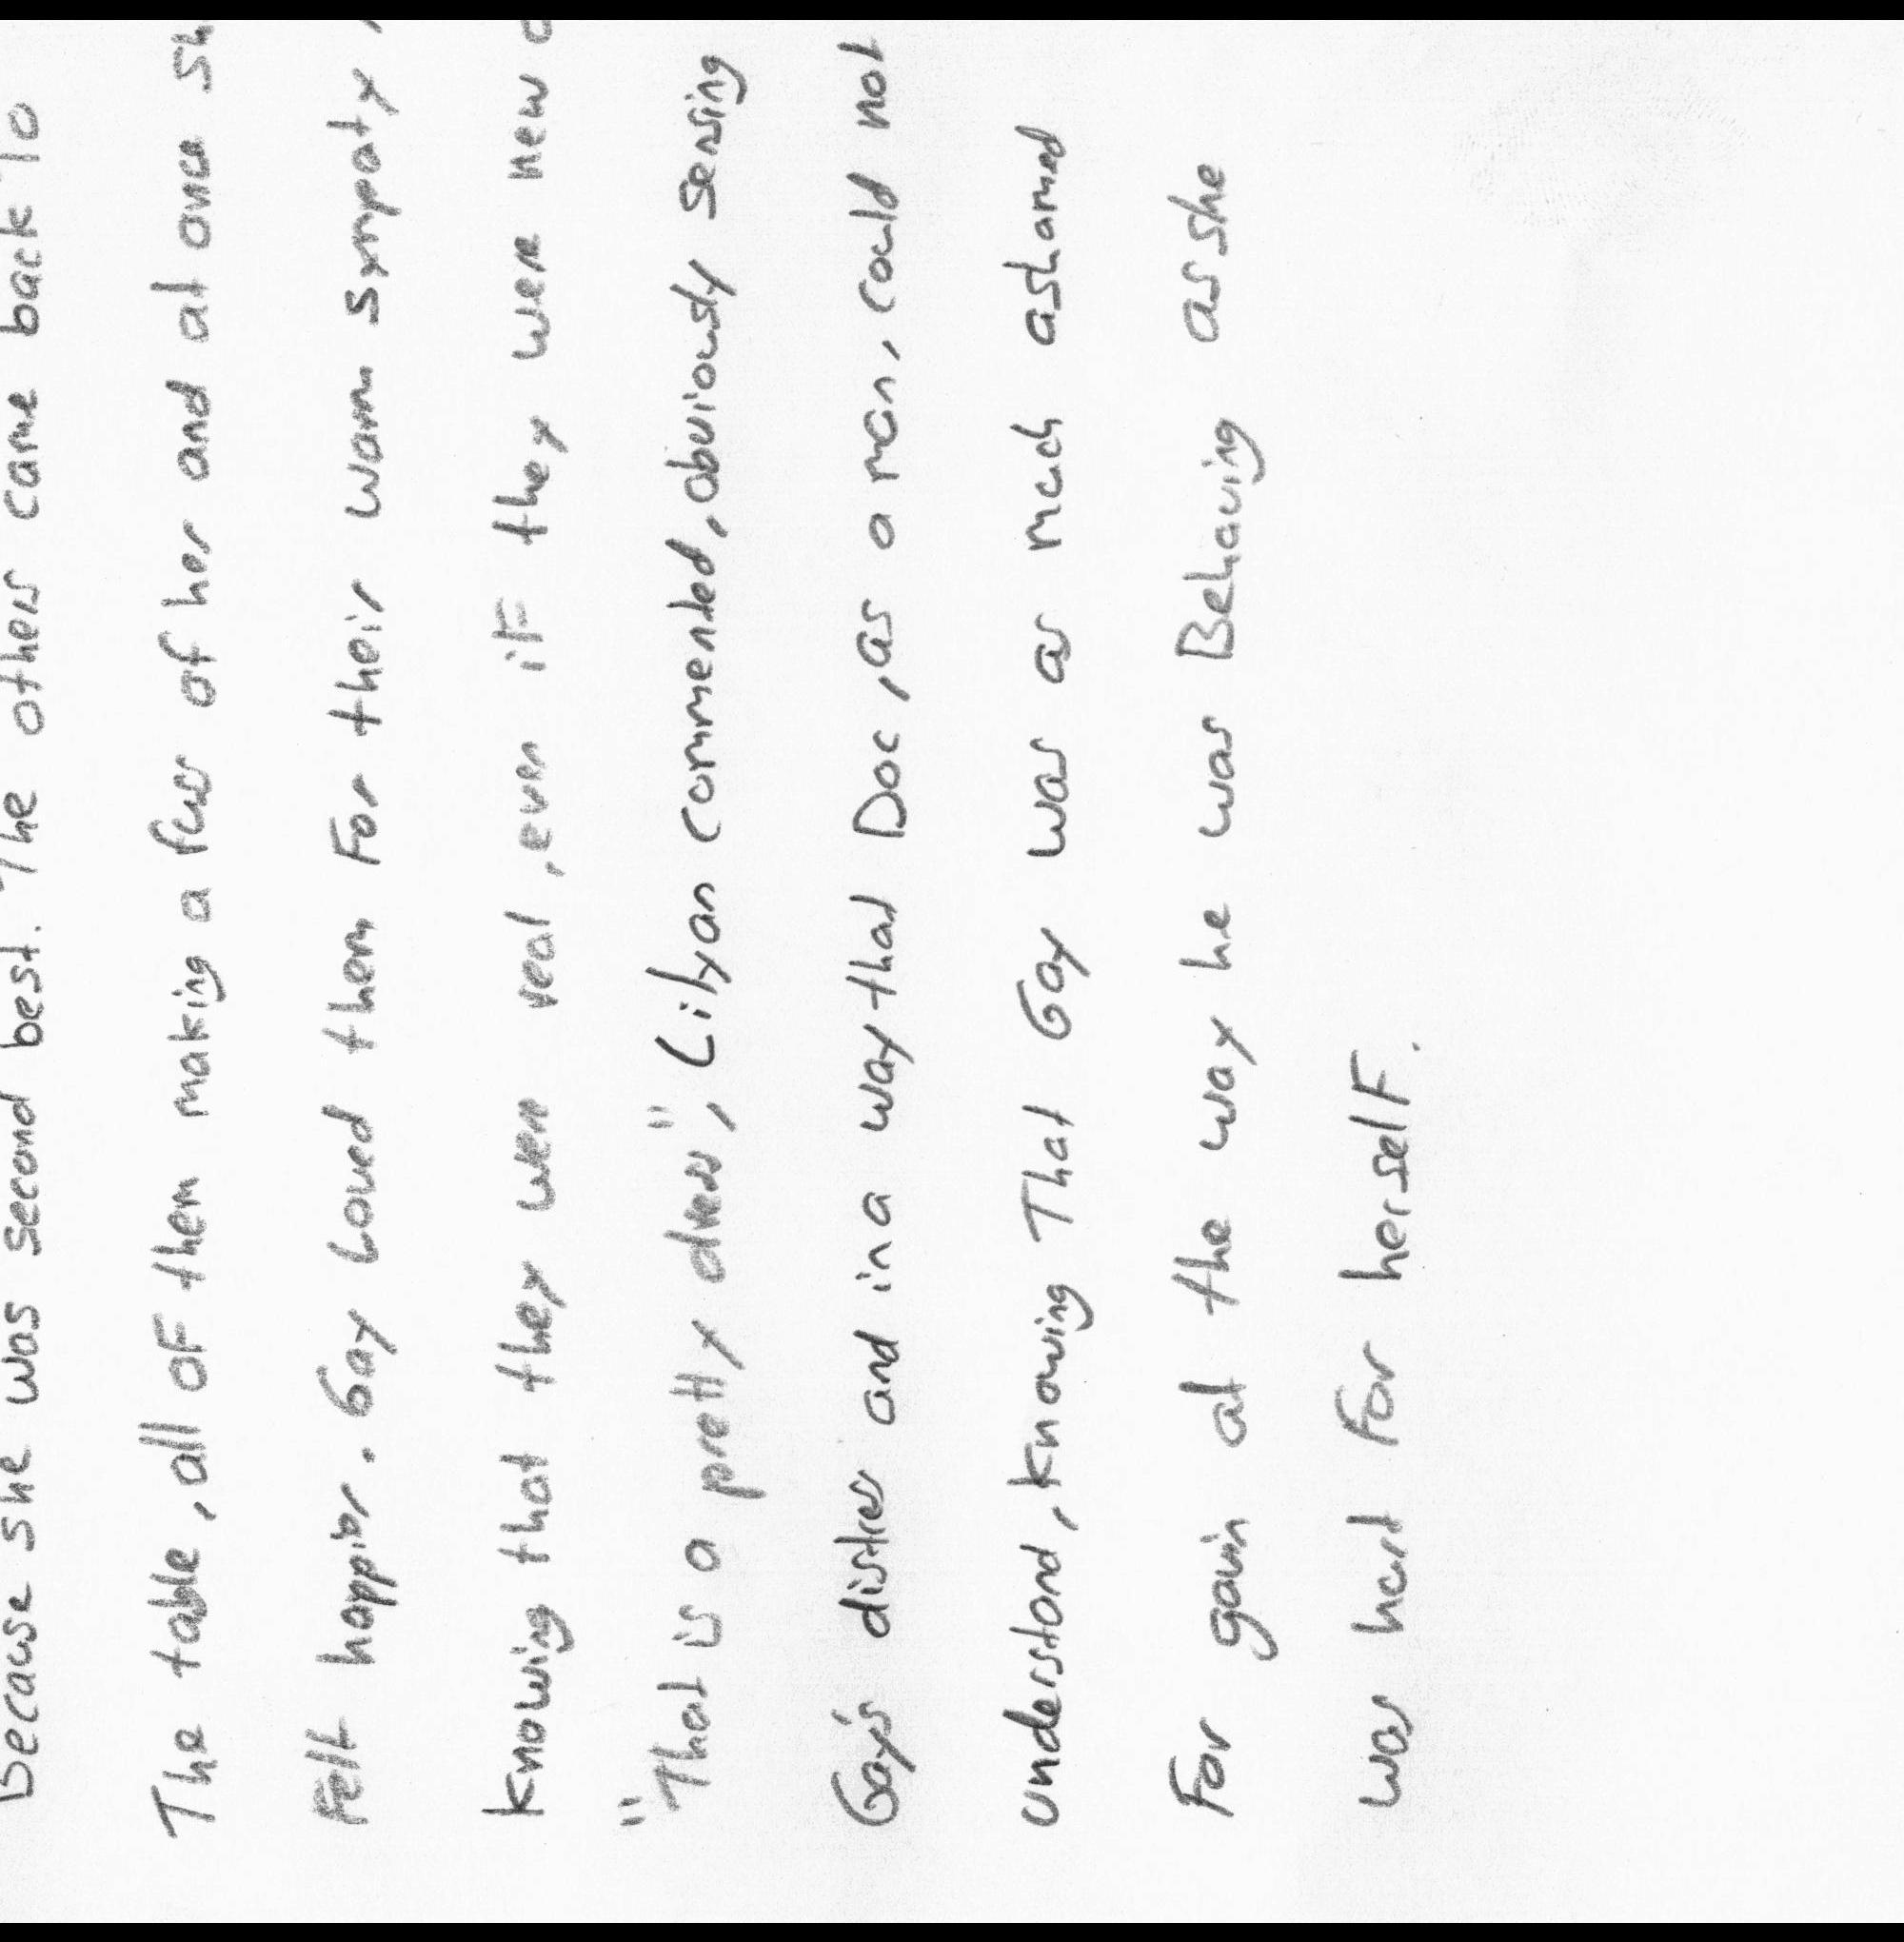 Because she was second best. The others came back To
The table, all oF them making a fuss of her and at once sh
Felt happier. Gay Loved them For their warm sympaty,
knowing that they were real, even iF they were new
"That is a pretty dress", Lilyan commented, obviously sensing
Gay's distress and in a way that Doc, as a man, could not
understand, knowing That Gay was as much ashamed
For gavin at the way he was Behaving as she
was hurt For herselF.